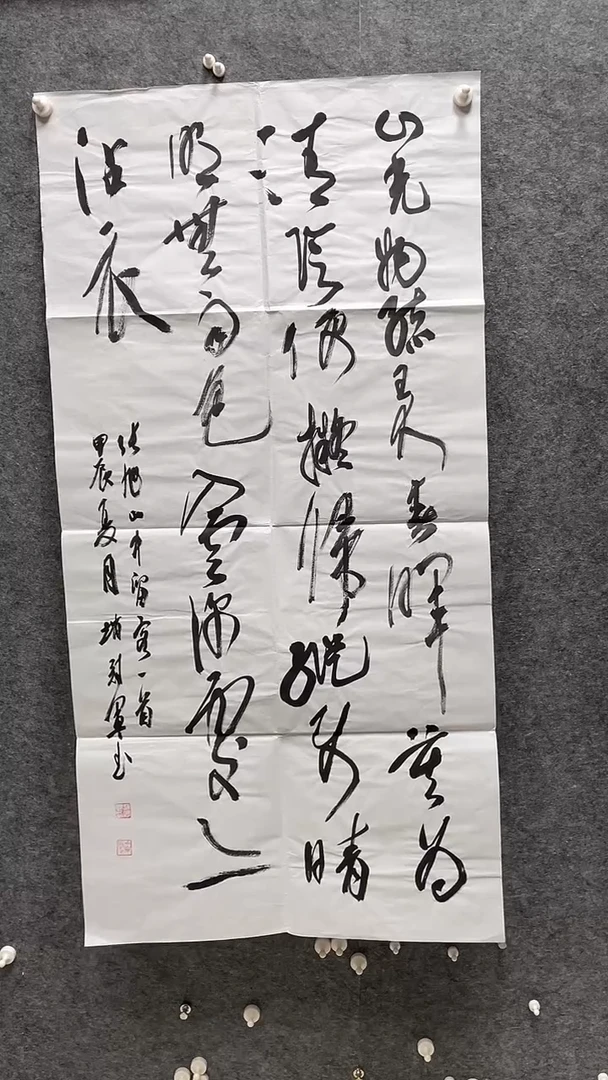 山光物態弄春暉莫为
清陰便擬歸縱使晴
明無雨色入雲深處亦
沾衣
张旭山中留客一首
甲辰夏月 軍书